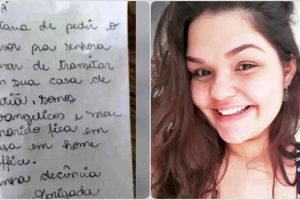 taria de pedir o
pra senhora
de transitar
sua casa de
somos
evangélicos e meu
marido fica em
casa em home
office.
decência
obrigada